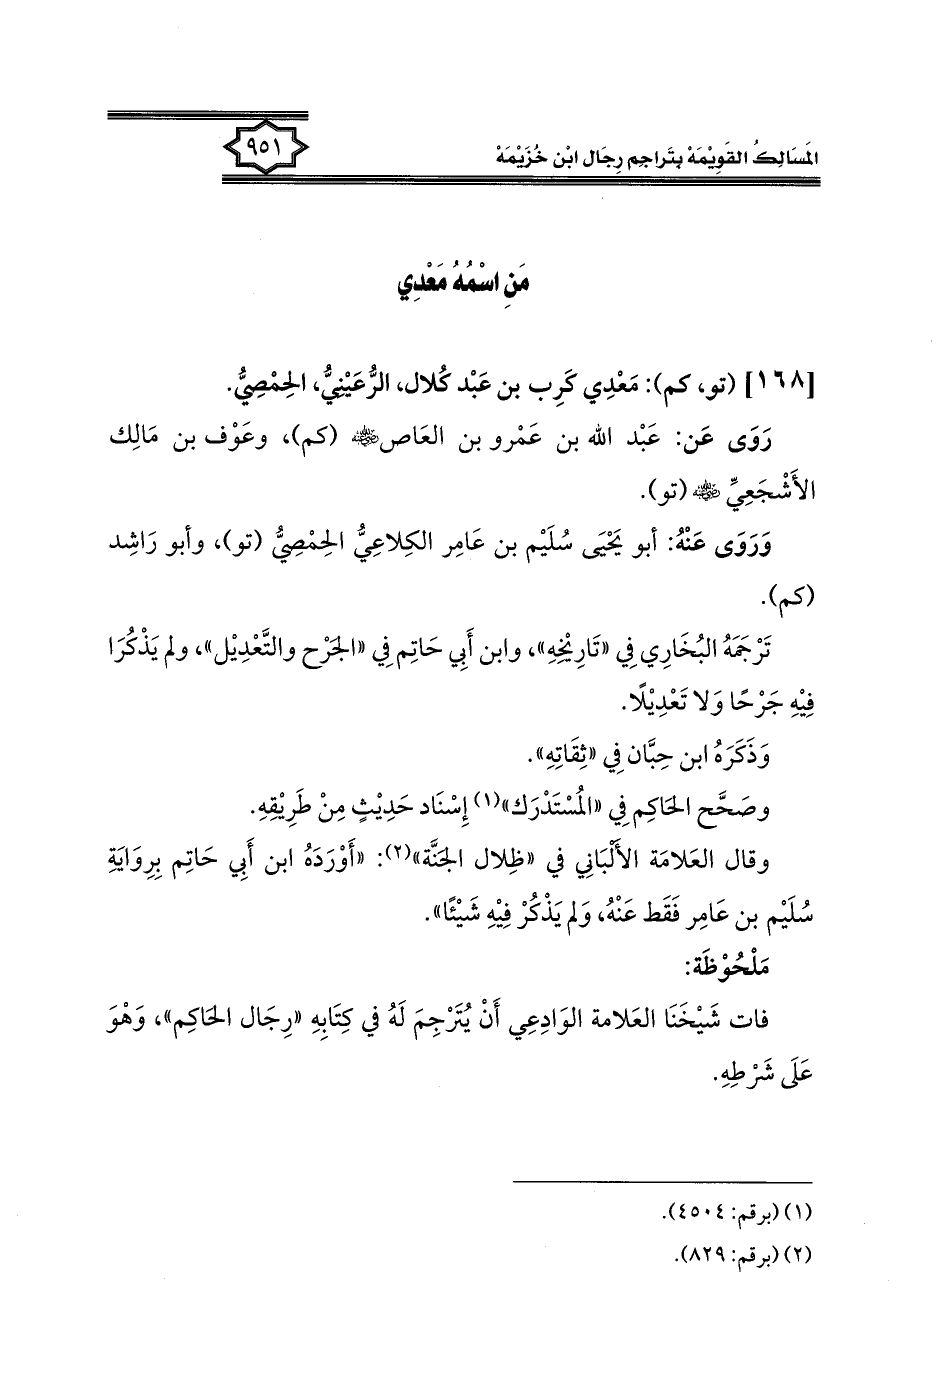 المَسَالِكُ القَوِيْمَة بِتَرَاجِم رِجَال ابْن خُزَيْمَة
٩٥١
مَنِ اسْمُهُ مَعْدِي
[١٦٨] (تو، كم): مَعْدِي كَرِب بن عَبْد كُلال، الرُّعَيْنِيُّ، الحِمْصِيُّ.
رَوَى عَن: عَبْد الله بن عَمْرو بن العَاص ﷺ (كم)، وعَوْف بن مَالِك
الأَشْجَعِيِّ ﷺ (تو).
وَرَوَى عَنْهُ: أبو يَحْيَى سُلَيْم بن عَامِر الكِلاعِيُّ الحِمْصِيُّ (تو)، وأبو رَاشِد
(كم).
تَرْجَمَهُ البُخَارِي فِي «تَارِيْخِهِ»، وابن أَبِي حَاتِم فِي «الجَرْح والتَّعْدِيْل»، ولم يَذْكُرَا
فِيْهِ جَرْحًا وَلا تَعْدِيْلًا.
وَذَكَرَهُ ابن حِبَّان فِي «ثِقَاتِهِ».
وصَحَّح الحَاكِم فِي «المُسْتَدْرَك»(١) إِسْنَاد حَدِيْثٍ مِنْ طَرِيْقِهِ.
وقال العَلامَة الأَلْبَانِي فِي «ظِلال الجَنَّة»(٢): «أَوْرَدَهُ ابن أَبِي حَاتِم بِرِوَايَةِ
سُلَيْم بن عَامِر فَقَط عَنْهُ، وَلم يَذْكُرْ فِيْهِ شَيْئًا».
مَلْحُوْظَة:
فات شَيْخَنَا العَلامة الوَادِعِي أَنْ يُتَرْجِمَ لَهُ فِي كِتَابِهِ «رِجَال الحَاكِم»، وَهْوَ
عَلَى شَرْطِهِ.
(١) (برقم: ٤٥٠٤).
(٢) (برقم: ٨٢٩).